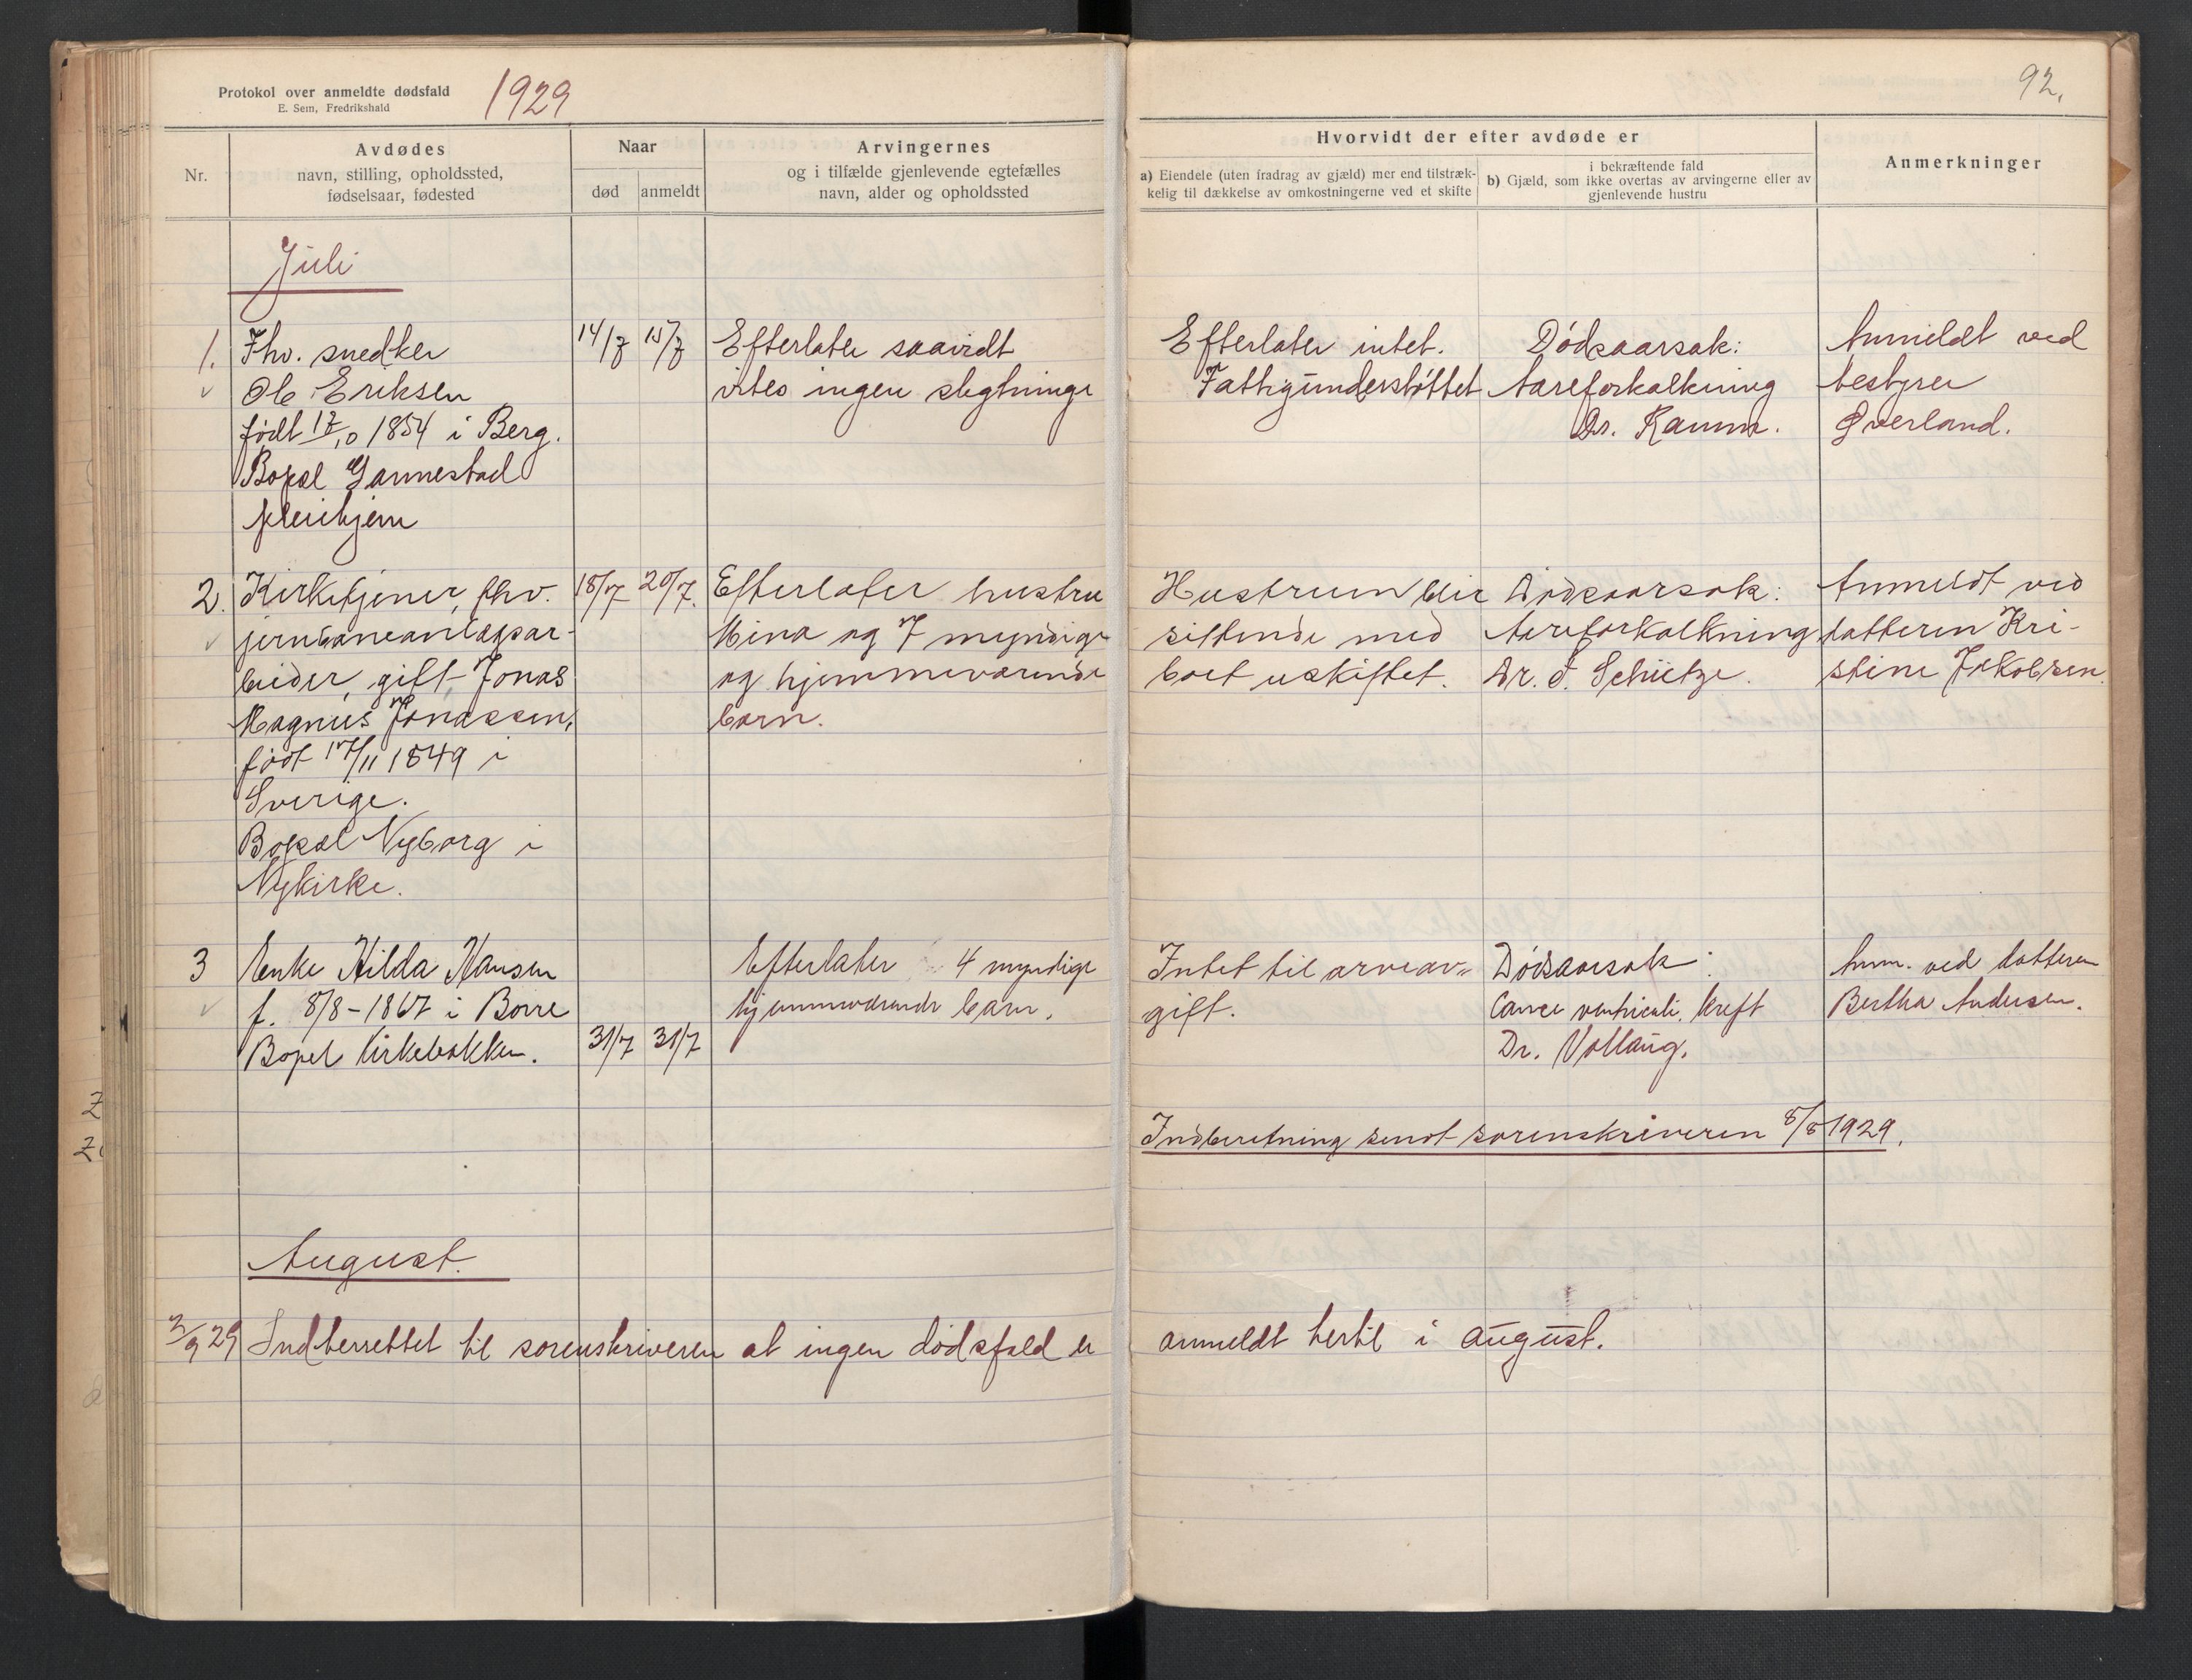 Protokol over anmeldte dødsfald
E. Sem, Fredrikshald
1929
Nr.
Avdødes
navn, stilling, opholdssted,
fødselsaar, fødested
Naar
død
anmeldt
Arvingernes
og i tilfælde gjenlevende egtefælles
navn, alder og opholdssted
Juli
1.
Fhv. snedker
Ole Eriksen
født 17/10 1854 i Berg.
Bopæl Gannestad
pleiehjem
14/7
15/7
Efterlater saavidt
vites ingen slegtninge
2.
Kirketjener, fhv.
jernbaneanlægsar-
beider, gift Jonas
Magnus Jonassen,
født 17/11 1849 i
Sverige.
Bopæl Nyborg i
Nykirke.
18/7
20/7.
Efterlater hustru
Mina og 7 myndige
og hjemmeværende
barn.
3
Enke Hilda Hansen
f. 8/8-1867 i Borre
Bopel Kirkebakken.
31/7
31/7
Efterlater 4 myndige
hjemmeværende barn.
August.
2/9 29
Indberrettet til sorenskriveren at ingen dødsfald er
92.
Hvorvidt der efter avdøde er
a) Eiendele (uten fradrag av gjæld) mer end tilstræk-
kelig til dækkelse av omkostningerne ved et skifte
i bekræftende fald
b) Gjæld, som ikke overtas av arvingerne eller av
gjenlevende hustru
Anmerkninger
Efterlater intet.
Fattigunderstøttet
Dødsaarsak:
Aareforkalkning
Dr. Ramm.
Anmeldt ved
bestyrer
Øverland.
Hustruen blir
sittende med
boet uskiftet.
Dødsaarsak:
Aareforkalkning
Dr. F. Schütze.
Anmeldt ved
datteren Kri-
stine Jakobsen.
Intet til arveav-
gift.
Dødsaarsak:
Cancer ventriculi. Kreft
Dr. Vollaug.
Anm. ved datteren
Bertha Andersen.
Indberetning sendt sorenskriveren 8/8 1929.
anmeldt hertil i august.